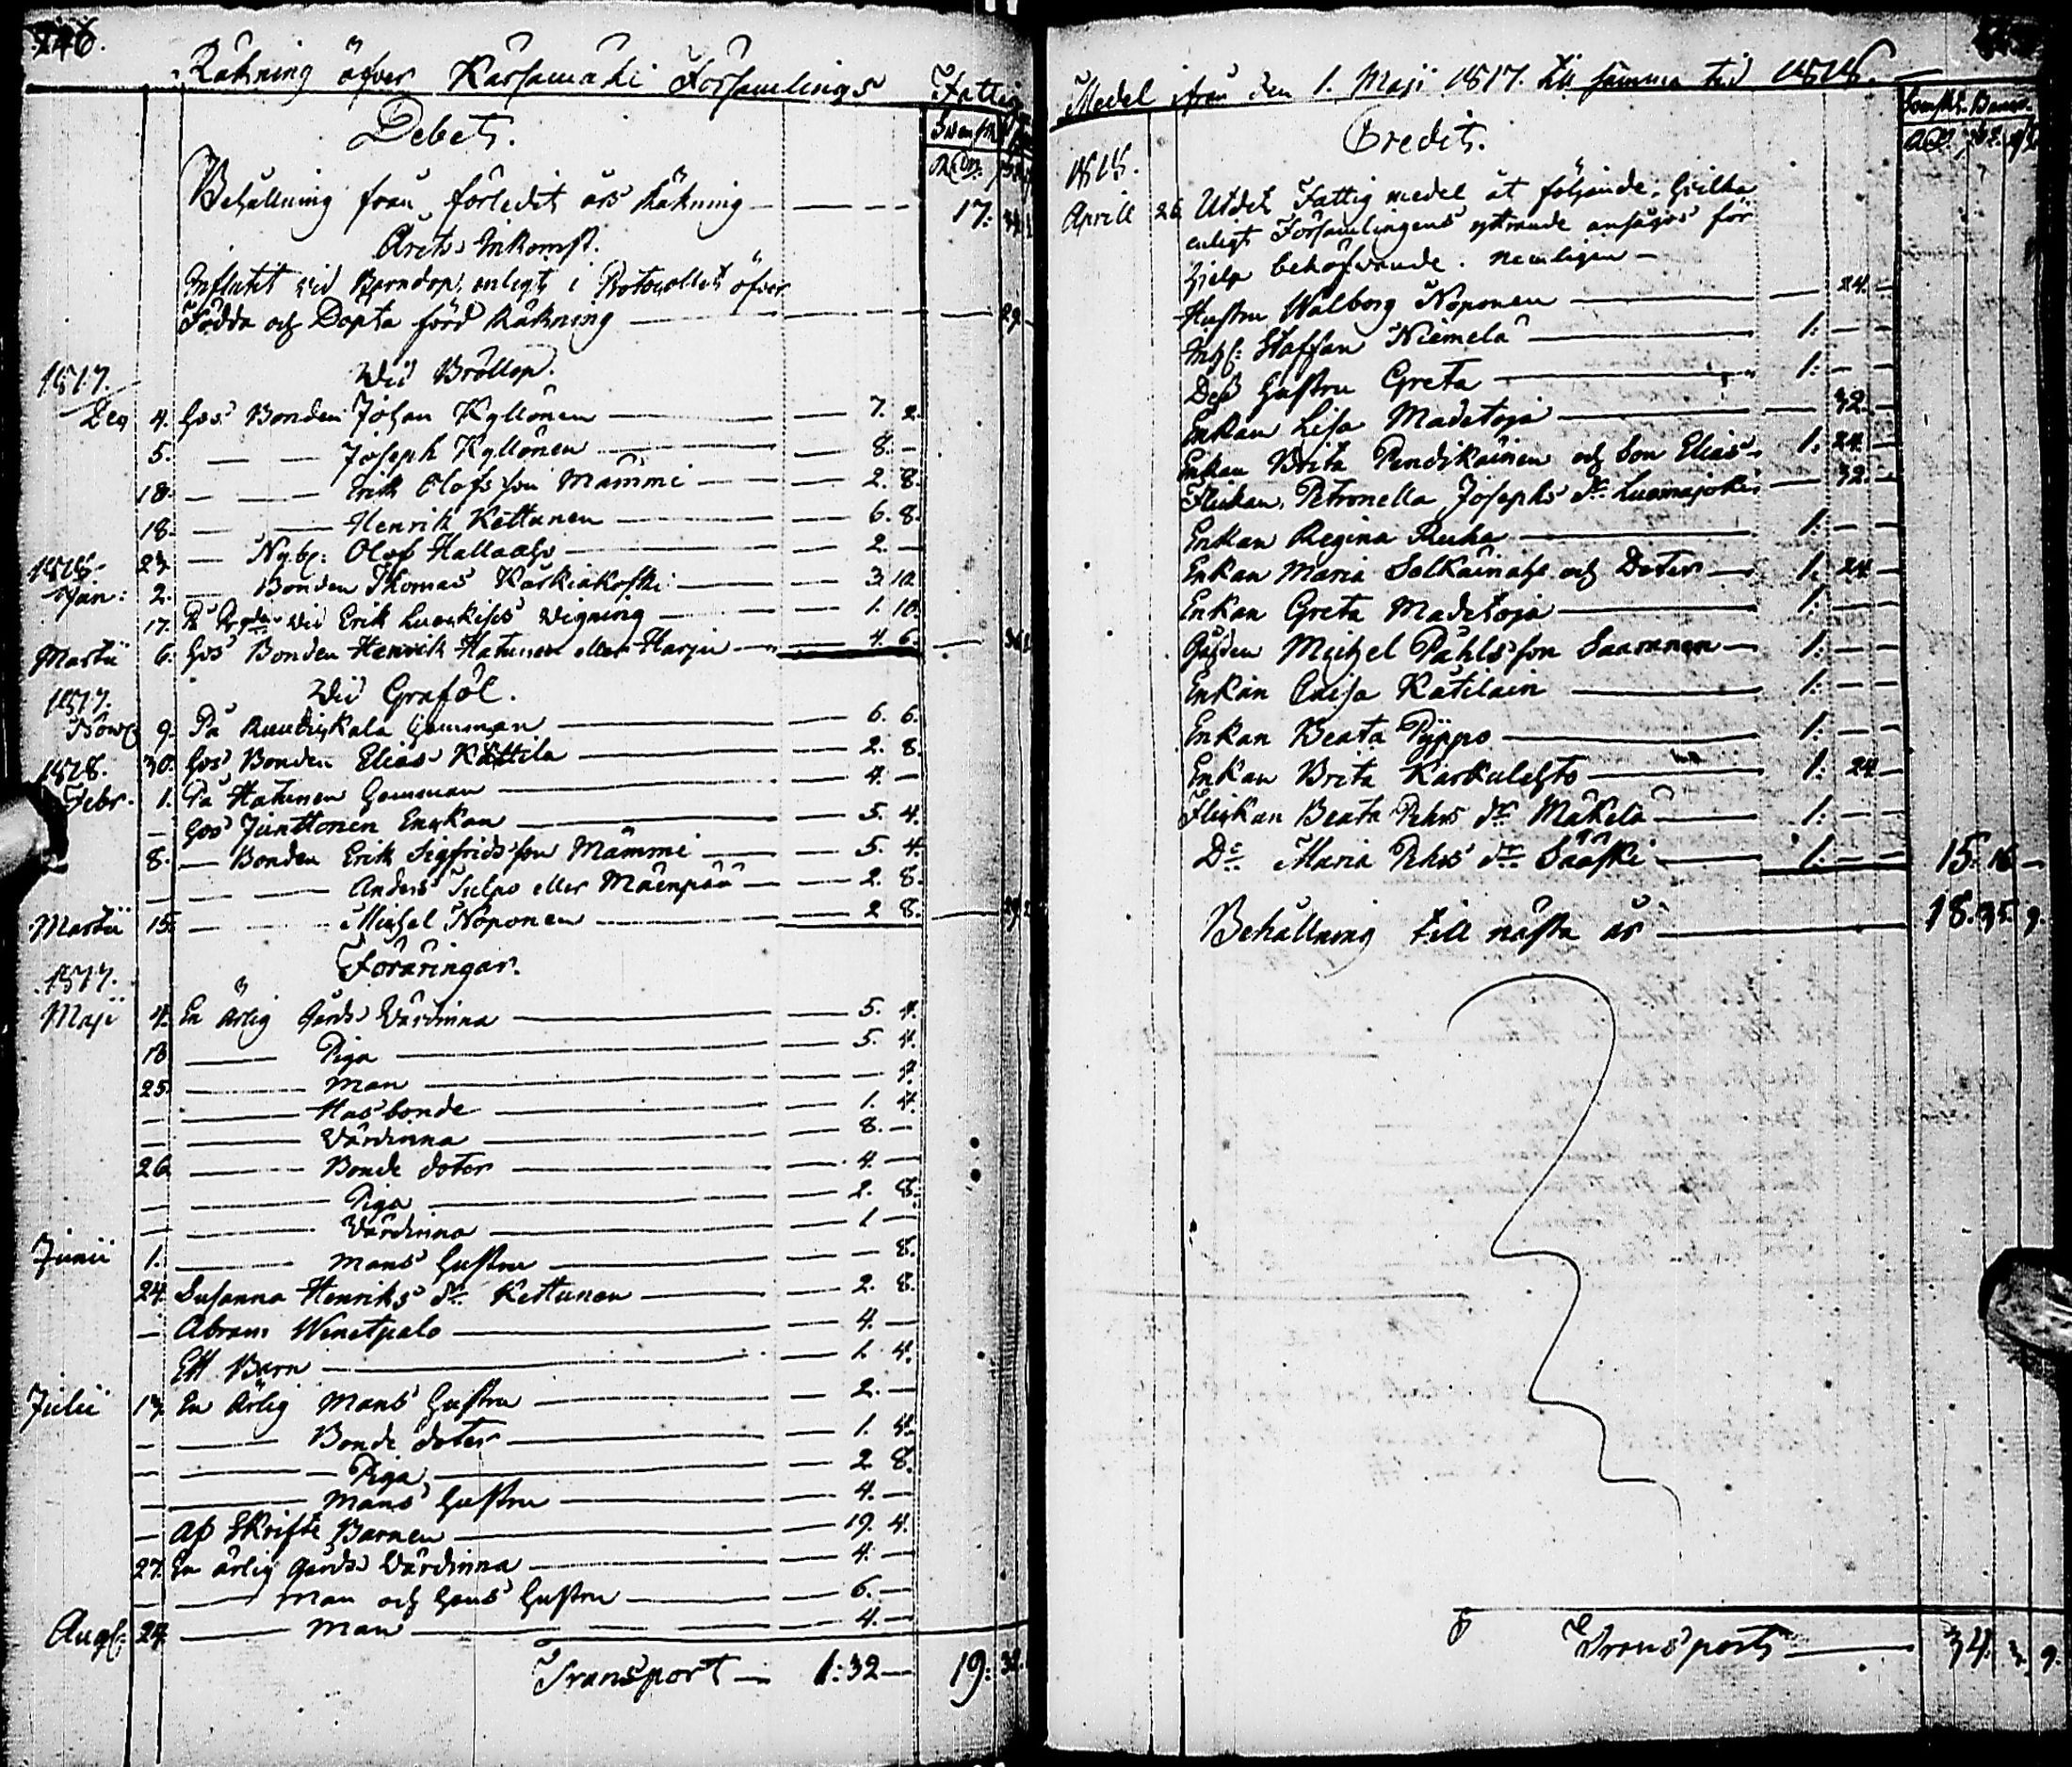 Räkning öfver Kärsämäki Församlings Fattig
Debet.
Behållning från förledit års Räkning — 17:
Årets Inkomst.
Influtit vid Barndop, enligt i Protocollet öfver
Födda och Döpta förd Räkning — 29
1817. Vid Bröllop.
4. Hos Bonden Johan Kyllönen — 7. 2.
5. — Joseph Kyllönen — 8. —
18. — Erik Olofs son Mämmi — 2. 8.
18. — Henrik Kettunen — 6. 8.
23. — Nyb: Olof Hallaaho — 2. —
1818.
Jan: 2. — Bonden Thomas Kärkiakoski — 3. 10.
17. vid Erik vigning — 1. 10.
Martii 6. Hos Bonden Henrik Hatunen eller Harju — 4. 6.
1817. Vid Graföl.
9. På hemman — 6. 6.
30. Hos Bonden Elias Kottila — 2. 8.
1818.
Febr. 1. På Hatunen hemman — 4. —
— Hos Junttonen Enkan — 5. 4.
8. — Bonden Erik Sigfrids son Mämmi — 5. 4.
— — Anders Tulpo eller Mäenpää — 2. 8.
Martii 15. — Michel Noponen — 2 8.
Föräringar.
1817.
Maji 4. En ärlig Gårds Värdinna — 5. 4.
18 — Piga — 5. 4.
25. — Man — 4.
— Husbonde — 1. 4.
— Värdinna — 8. —
26 — Bonde doter — 4. —
— Piga — 2. 8.
— Värdinna — 1 —
Junii 1. — Mans Hustru — 8.
24. Susanna Henriks dr. Kettunen — 2. 8.
— Abram Wenetpalo — 4. —
Ett Barn — 1. 4.
Julii 13. En Ärlig Mans Hustru — 2. —
— Bonde doter — 1. 4.
— Piga — 2 8.
— Mans Hustru — 4. —
— Af Skrifte Barnen — 19. 4.
27. En ärlig Gårds Värdinna — 4. —
— Man och hans Hustru — 6. —
Aug: 24. — Man — 4. —
Transport — 1: 32 — 19: 32.
Medel ifrån den 1. Maji 1817. till samma tid 1818.
Credit.
1818.
Aprill 26 Utdelt Fattig medel åt följande, hvilka
enligt Församlingens yttrande ansågos för
hjelp behöfvande. nemligen —
Hustru Walborg Noponen — 24. —
Inh: Staffan Niemelä — 1: — —
Dess Hustru Greta — 1: — —
Enkan Lisa Madetoja — 32. —
Enkan Brita Pendikäinen och Son Elias — 1: 24. —
Flickan Petronella Josephs dr. Luomajoki — 32. —
Enkan Regina Ruha — 1: — —
Enkan Maria Selkäinaho och Doter — 1: 24 —
Enkan Greta Madetoja — 1: — —
Michel Påhls son Saaranen — 1: — —
Enkan Caisa Kätilain — 1: — —
Enkan Beata Pyppo — 1: — —
Enkan Brita Karkulehto — 1: 24 —
Flickan Beata Pehrs dr Mäkelä — 1: — —
Do Maria Pehrs dr Sääski — 1: — — 15. 16 —
Behållning till nästa år — 18. 35. 9.
Transport — 34. 3. 9.